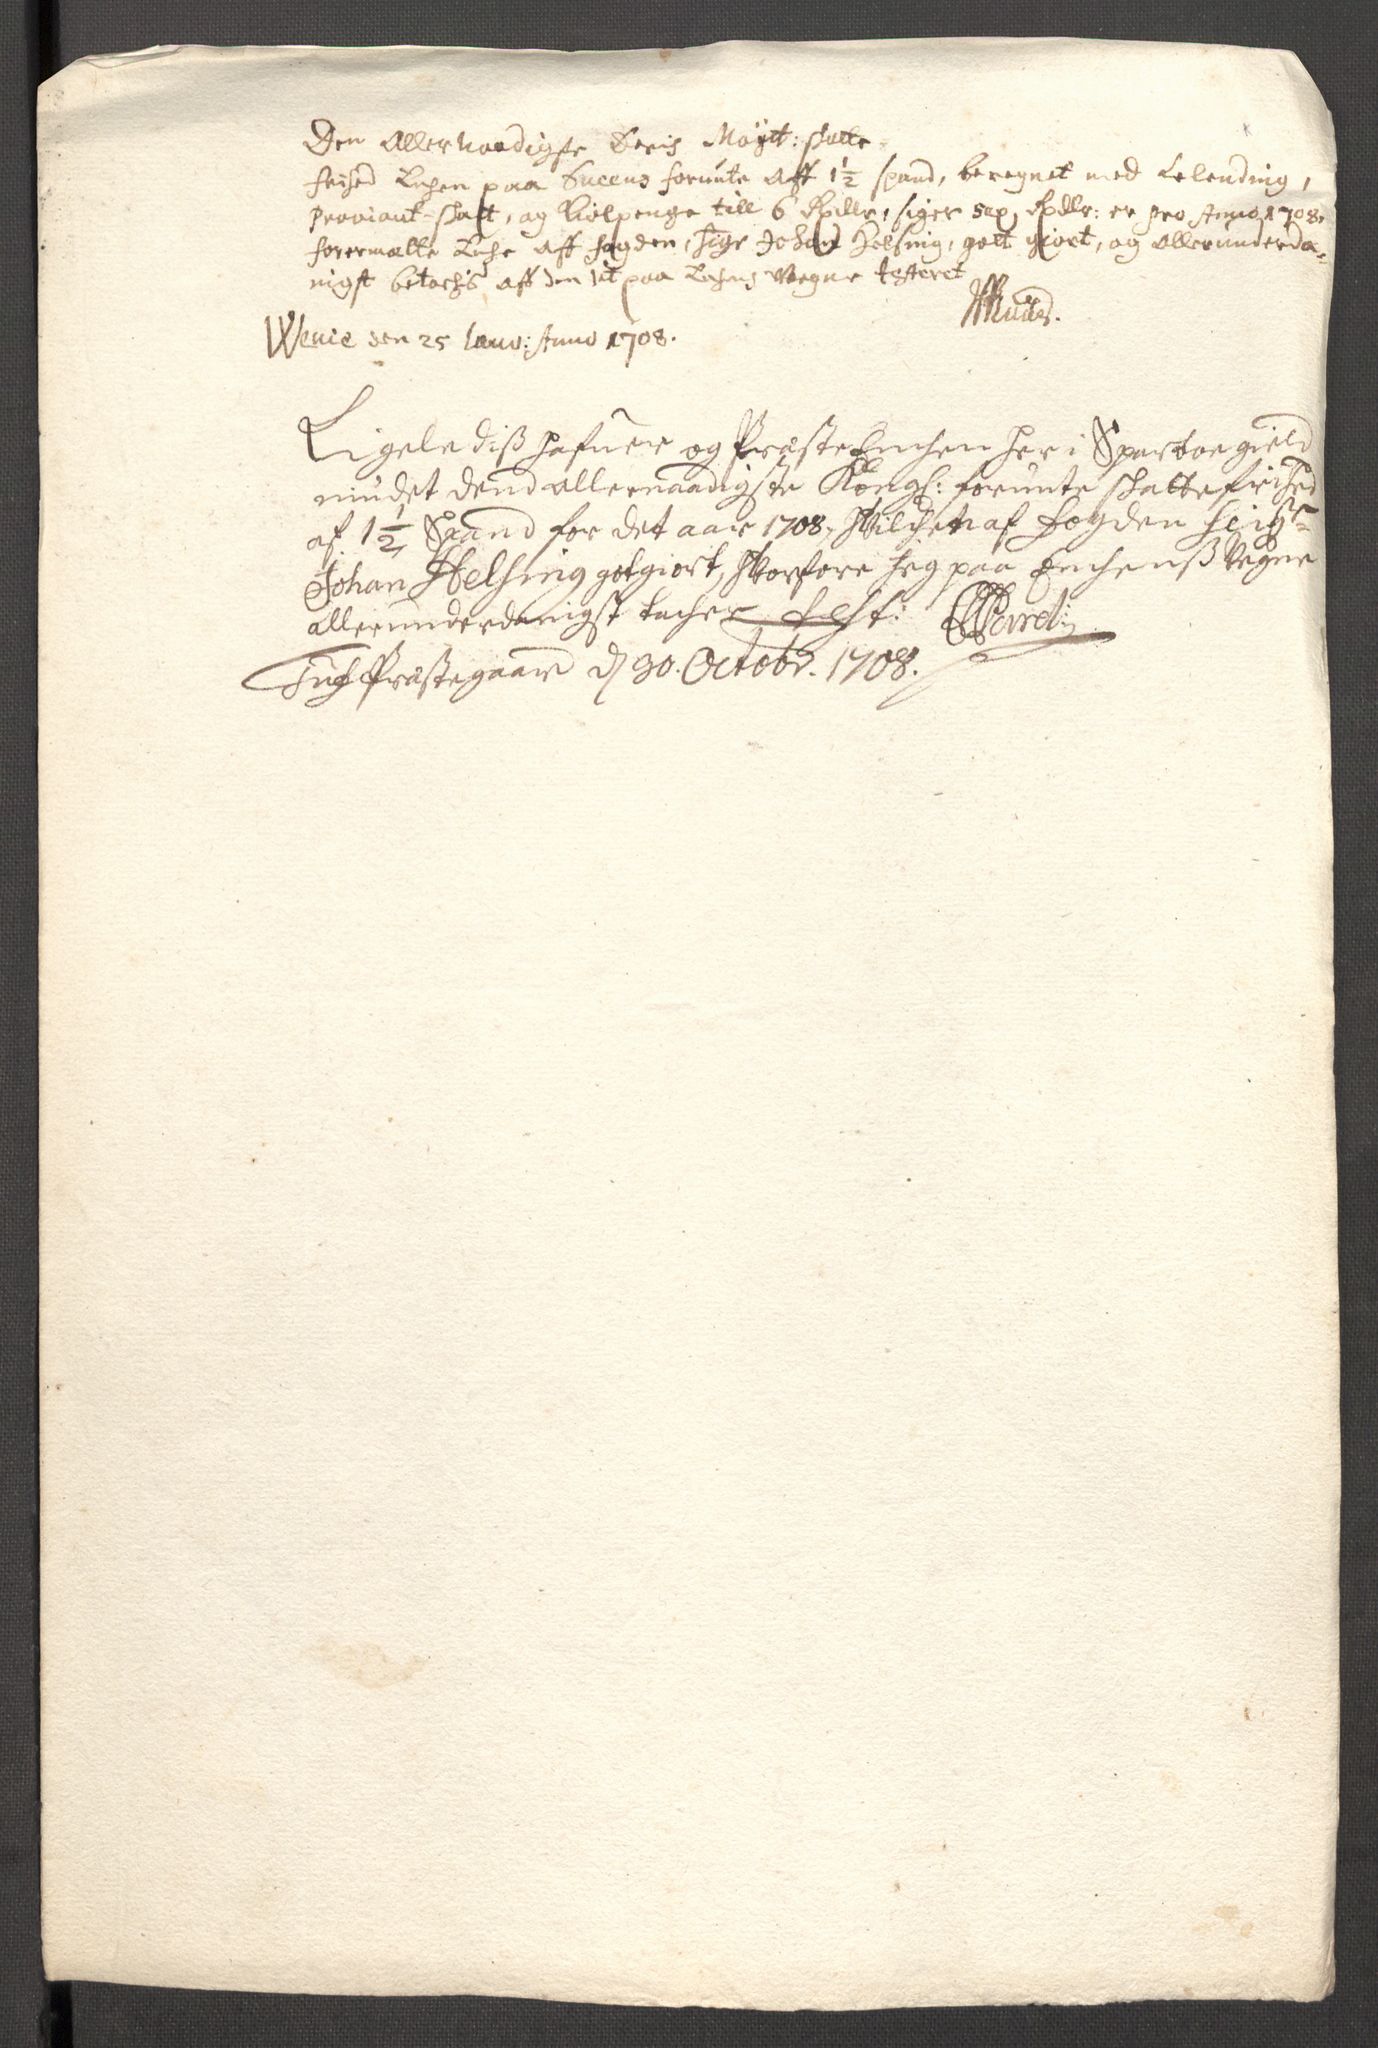 Den Allernaadigste Deris Mayst: skatte-
frihed Enchen paa forunte aff 1½ spand, beregnet med Leleding,
Proviant-skatt, og Hiolpenge till 6 Rixdlr, siger sex Rixdlr: er pro Anno 1708.
formelte Enche aff fogden, Sigr Johan Helsing, gott giort, og allerunderda-
nigst betachis aff den, it paa Enchens Wegne testeret
Werie den 25 Anno 1708.
Ligeledis hafuer og PræsteEnchen her i Sparboe gield
niudet dend allernaadigste Kongl: forunte skattefrihed
af 1½ Spand for det aar 1708, hvilchet af fogden Seigr
Johan Helsing gotgiort, hvorfore jeg paa Enchenß Vegne
allerunderdanigst tacher test:
Præstegaard d 30. Octobr. 1708.